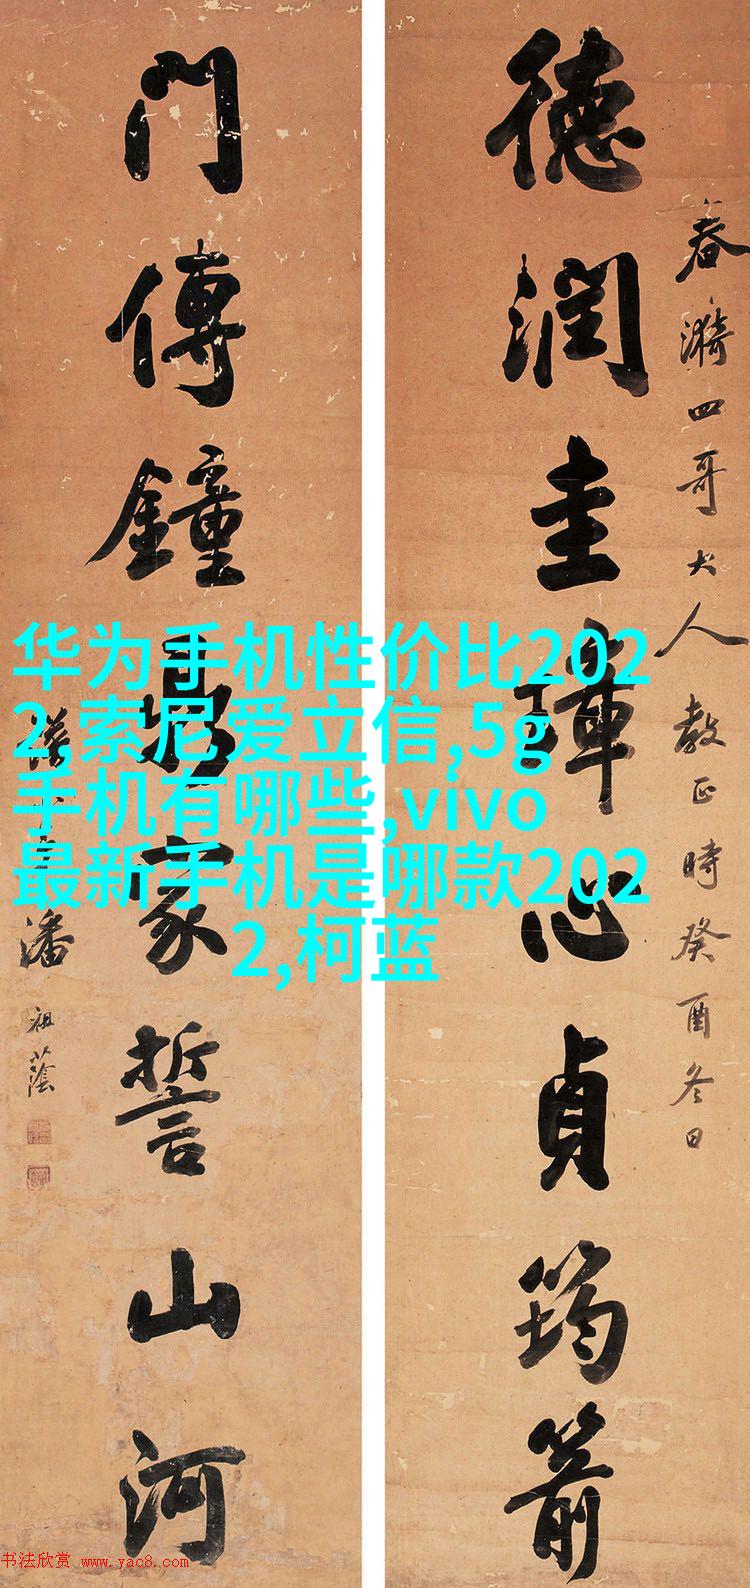 春漪四哥大人教正時癸酉冬日
德潤圭璋心貞筠箭
門傳鐘鼎家誓山河
潘祖蔭
华为手机性价比202
2,索尼爱立信,5g
手机有哪些,vivo
最新手机是哪款202
2,柯蓝
书法欣赏 www.yac8.com